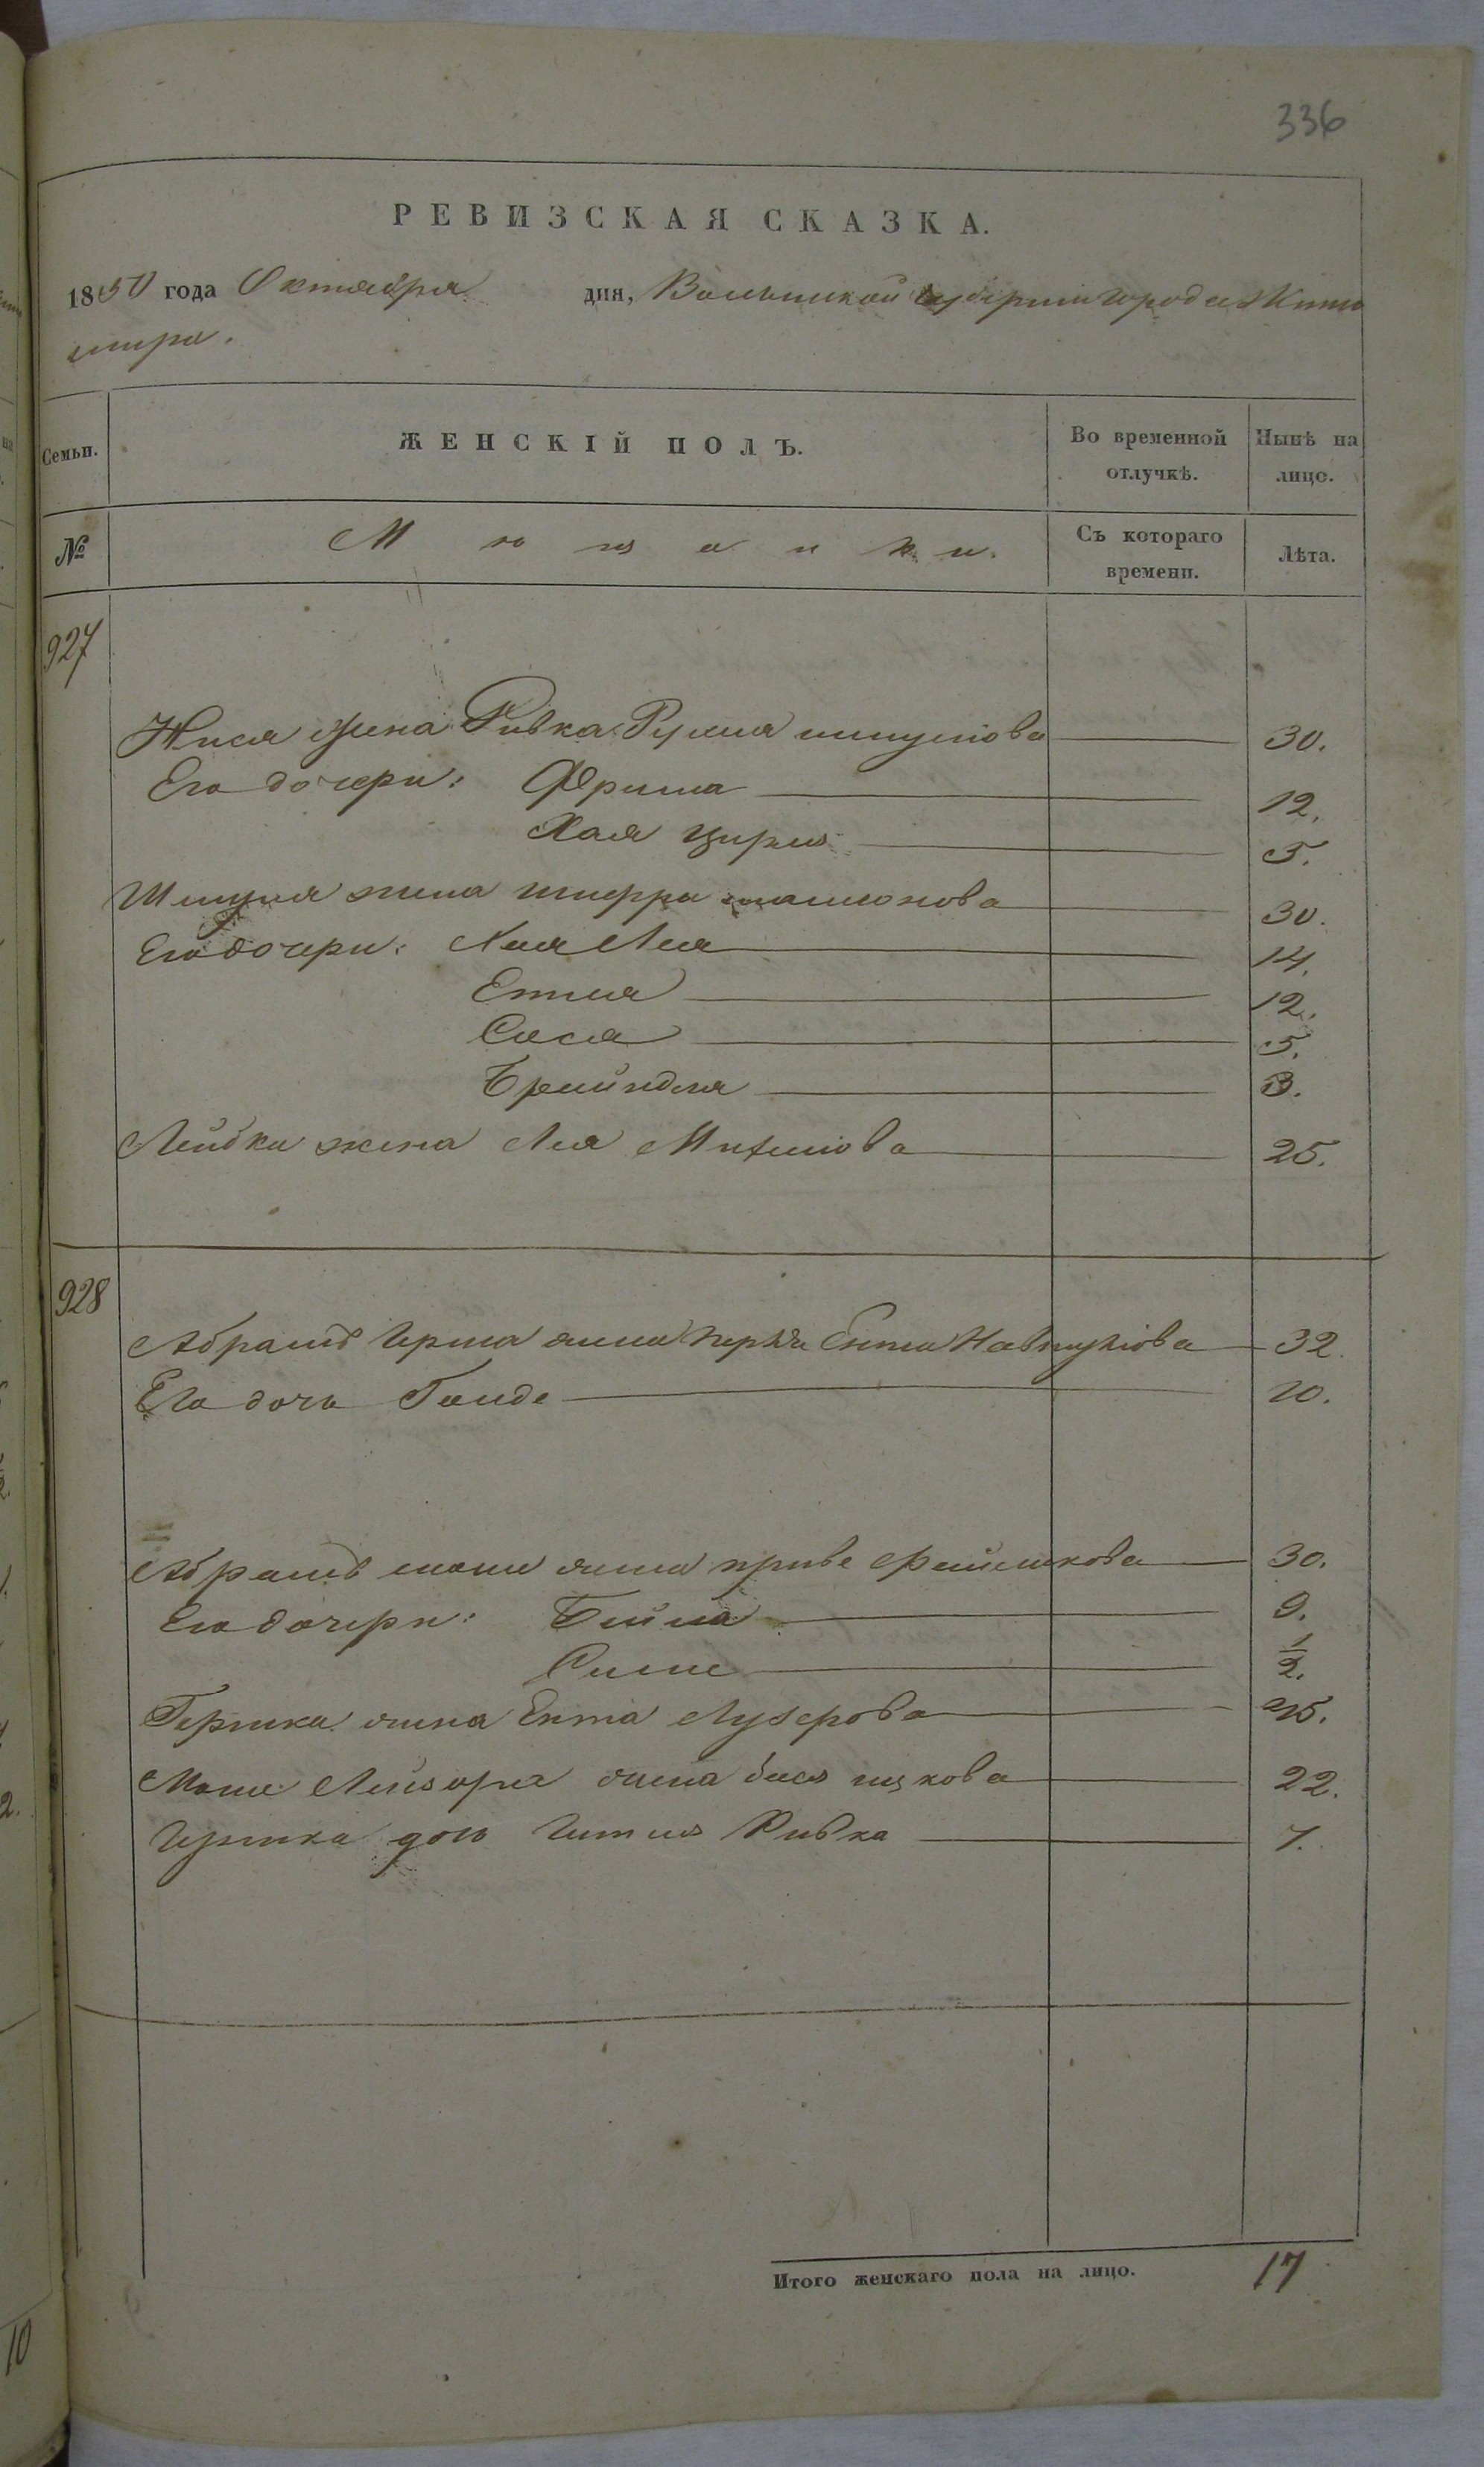 336
РЕВИЗСКАЯ СКАЗКА.
1850 года Октября дня, Волынской губерніи города Жито
мира.
Семьи. ЖЕНСКІЙ ПОЛЪ. Во временной отлучкѣ. Нынѣ на лицо.
№ Мѣщанки. Съ котораго времени. Лѣта.
927
Нися жена Ривка Рухля 30.
Его дочери: Фрима 12.
Хая Цирля 5.
Шмуля жена Шифра 30.
Его дочери: Хая Лея 14.
Етля 12.
Сося 5.
Брейндля 3.
Лейбки жена Лея 25.
928
Абрамъ Герша жена Перля Ента Навтулiова 32.
Его дочь Генде 10.
Абрамъ жена 30.
Его дочери: Бейла 9.
Симе 1/2.
Гершка жена Ента Лузерова 25.
Моше Лейзора жена Бася Ицкова 22.
Гершка дочь Гитля Ривка 7.
Итого женскаго пола на лицо. 17
2.
10